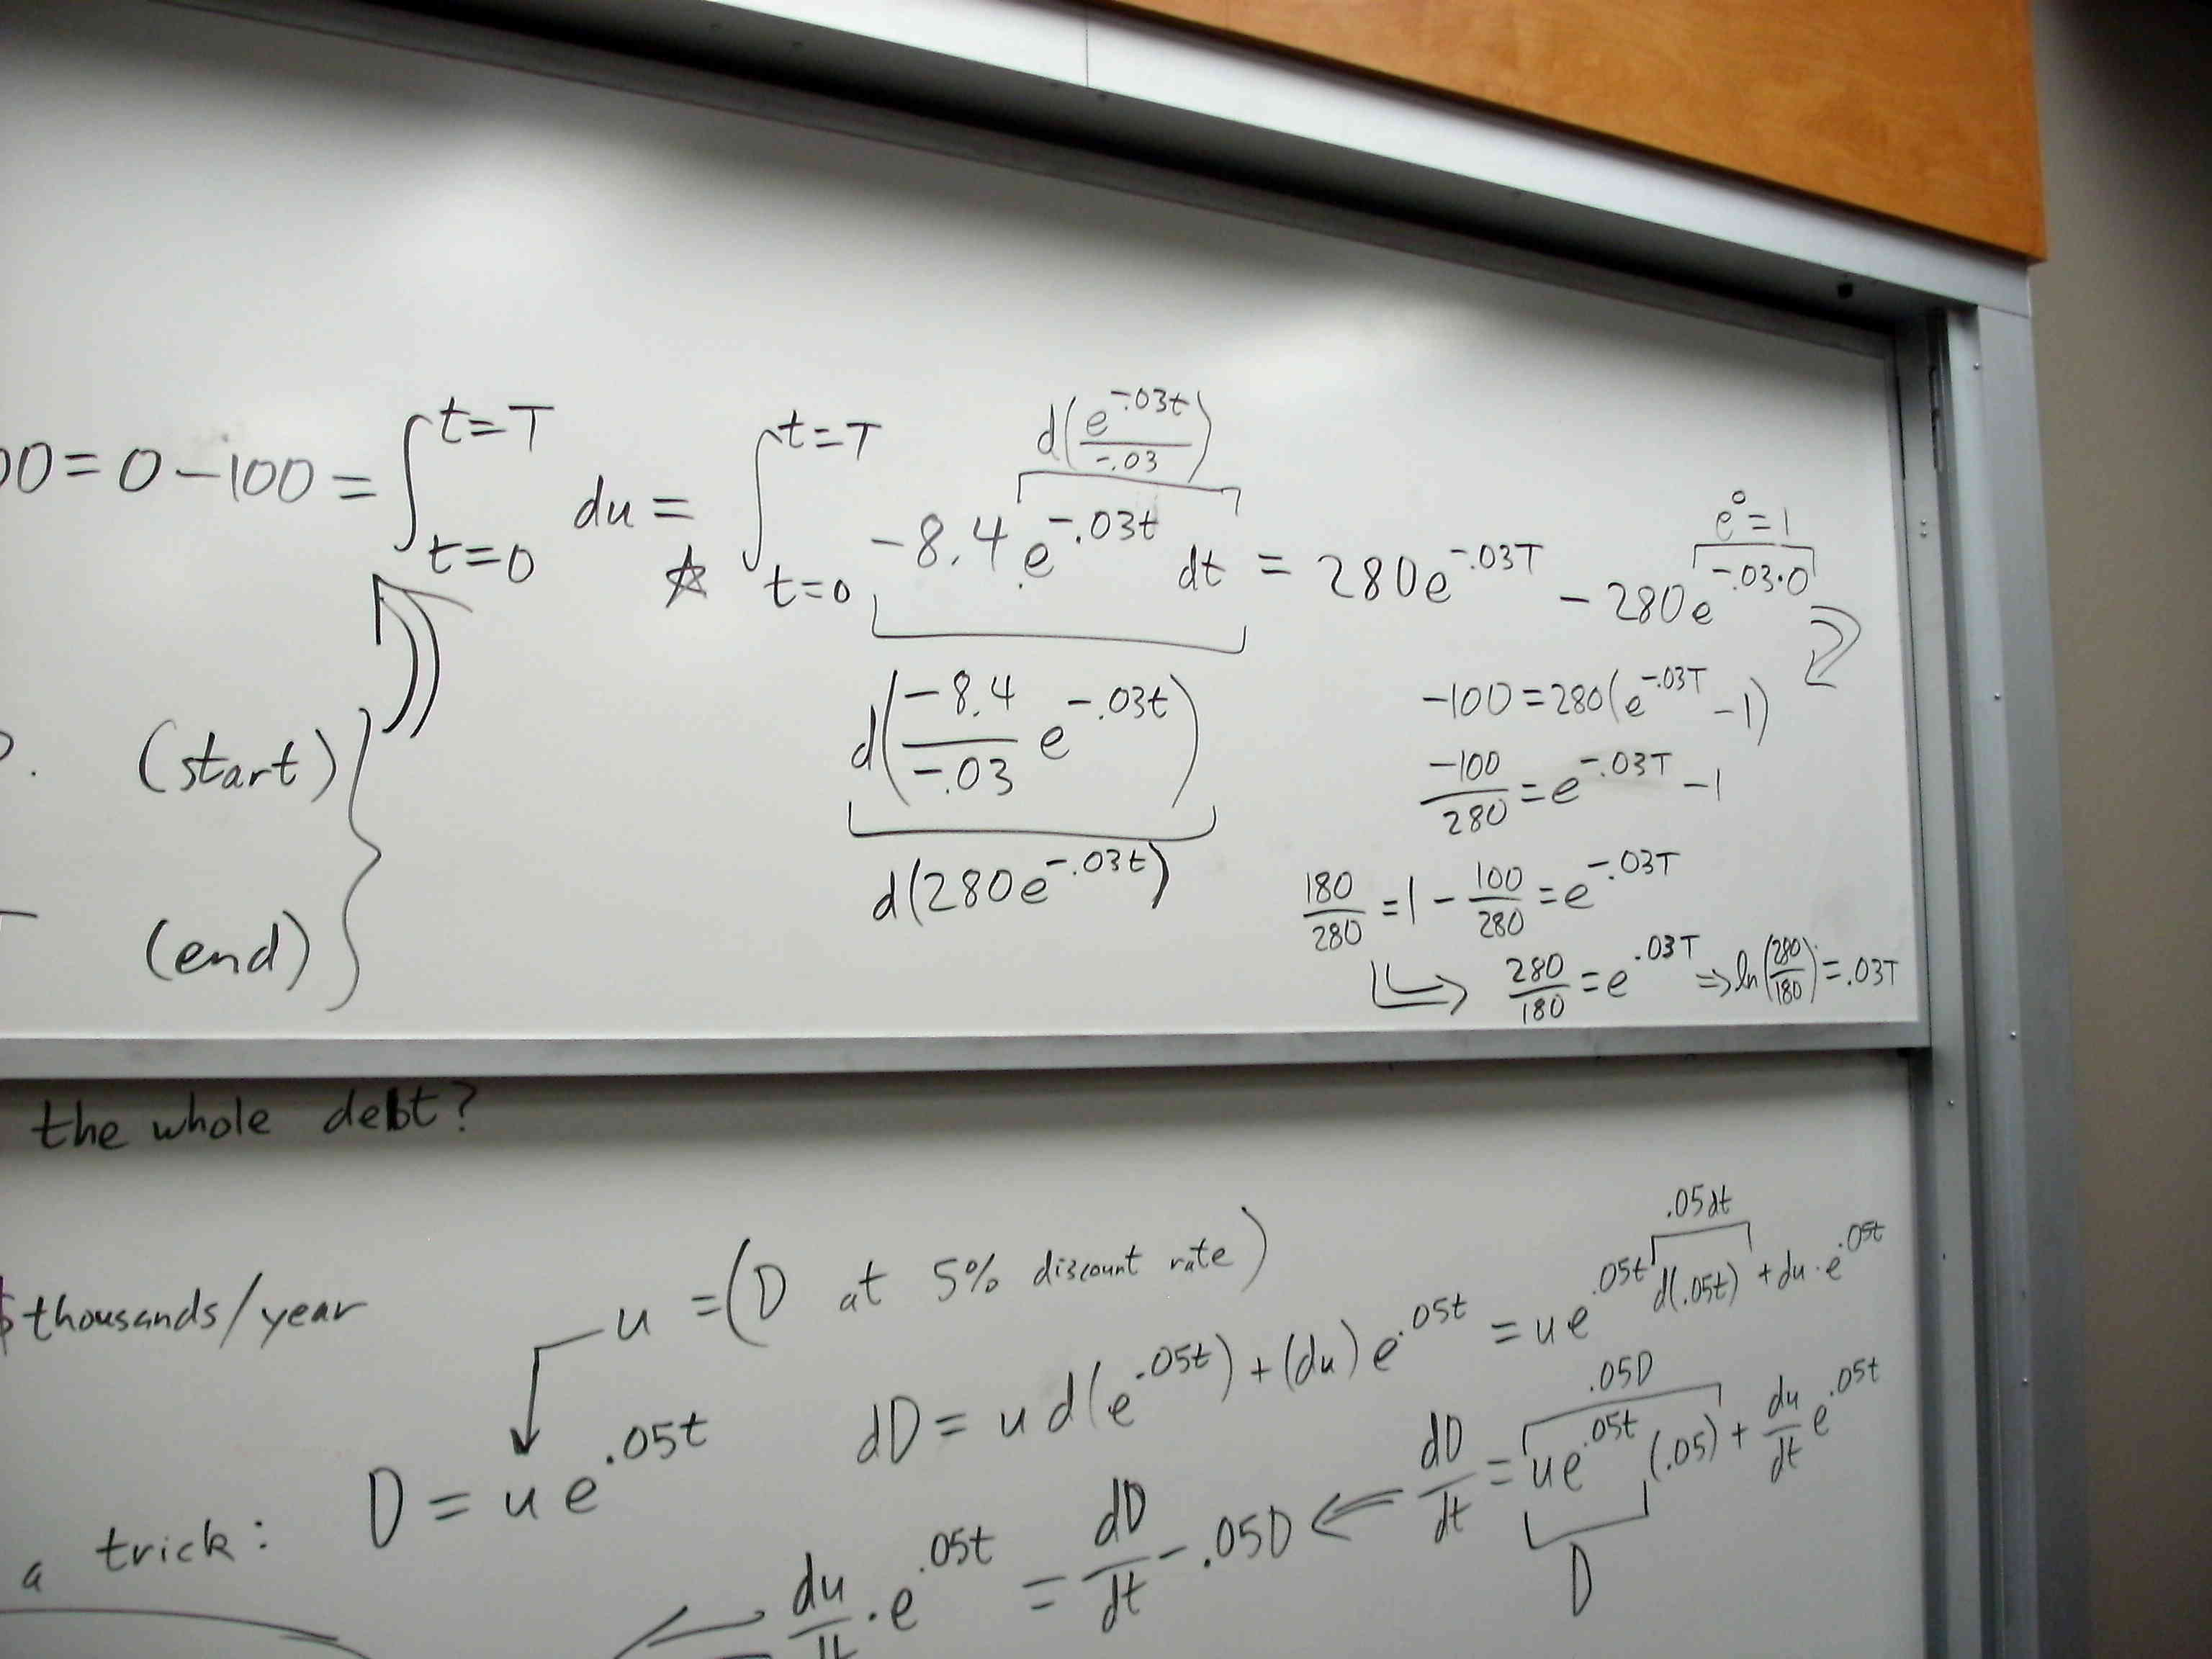 00 = 0 − 100 = ∫_{t=0}^{t=T} du = ∫_{t=0}^{t=T} −8.4 e^{−.03t} dt = 280e^{−.03T} − 280e^{−.03·0}
d(e^{−.03t}/−.03)
e^0 = 1
☆
d(−8.4/−.03 e^{−.03t})
d(280e^{−.03t})
−100 = 280(e^{−.03T} − 1)
−100/280 = e^{−.03T} − 1
180/280 = 1 − 100/280 = e^{−.03T}
⇒ 280/180 = e^{.03T} ⇒ ln(280/180) = .03T
(start)
(end)
the whole debt?
$ thousands/year
u = (D at 5% discount rate)
a trick: D = u e^{.05t}
.05dt
dD = u d(e^{.05t}) + (du) e^{.05t} = u e^{.05t} d(.05t) + du · e^{.05t}
.05D
dD/dt = ue^{.05t} (.05) + du/dt e^{.05t}
D
du/dt · e^{.05t} = dD/dt − .05D ⇐